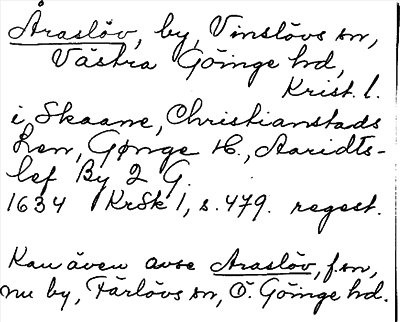 Åraslöv, by, Vinslövs sn,
Västra Göinge hd,
Krist. l.
i, Skaane, Christianstads
Len, Gønge H., Aaridts-
lef By 2 G.
1634 KrSk 1, s. 479. regest.
Kan även avse Araslöv, f. sn,
nu by, Färlövs sn, Ö. Göinge hd.